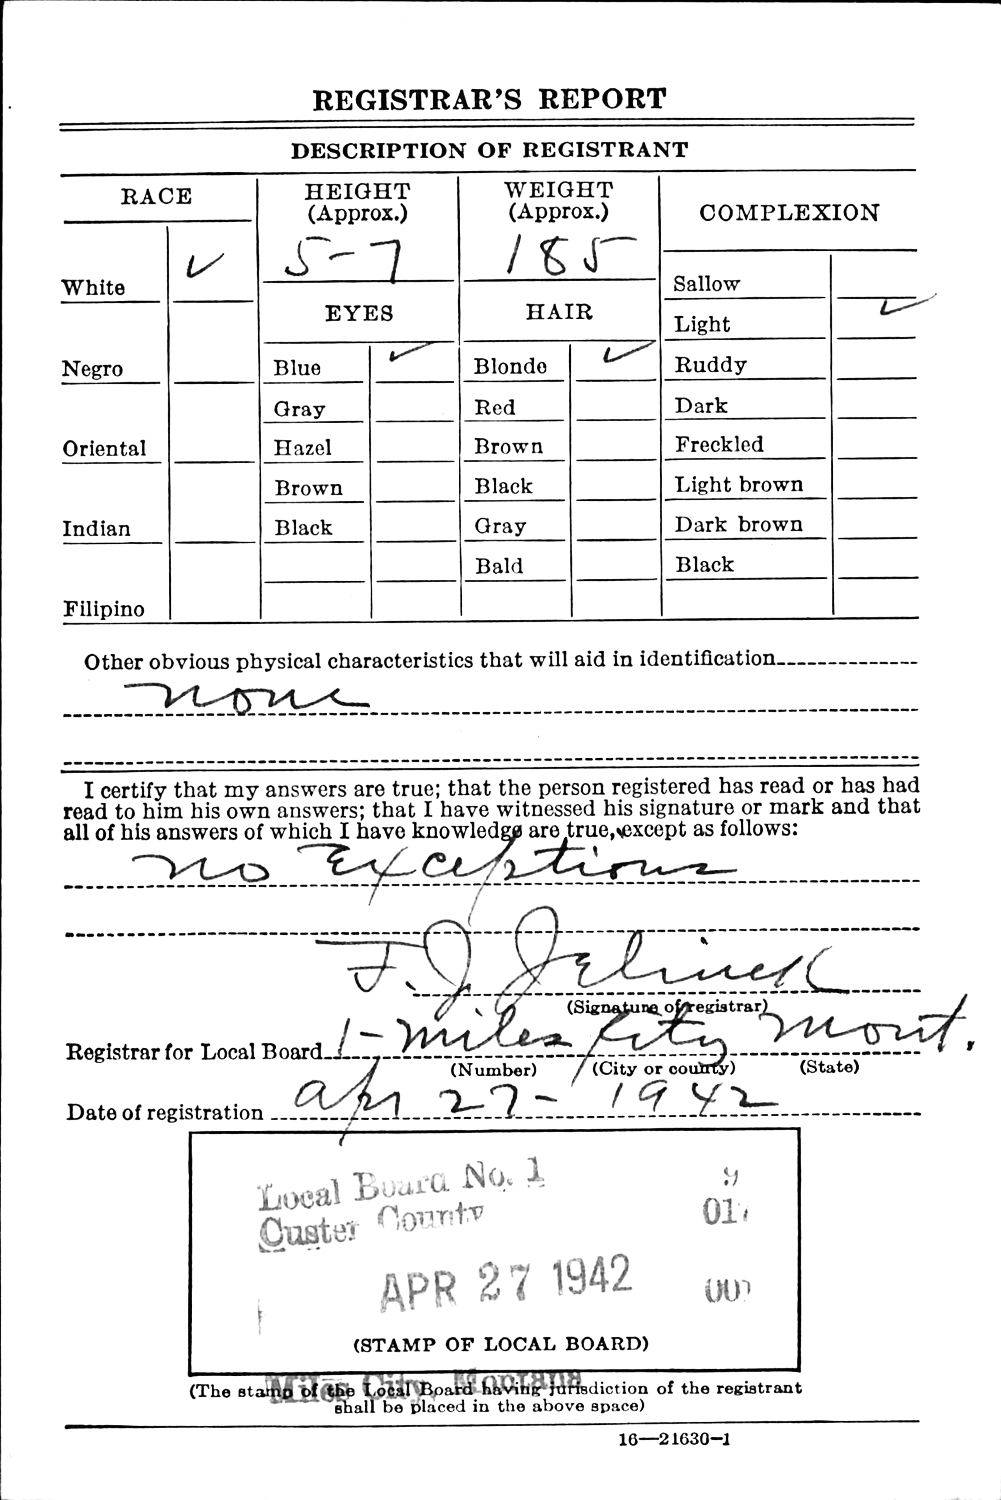 REGISTRAR'S REPORT
DESCRIPTION OF REGISTRANT
RACE
HEIGHT
(Approx.)
WEIGHT
(Approx.)
COMPLEXION
5-7
185
White ✓
Sallow
EYES
HAIR
Light ✓
Negro
Blue ✓
Blonde ✓
Ruddy
Gray
Red
Dark
Oriental
Hazel
Brown
Freckled
Brown
Black
Light brown
Indian
Black
Gray
Dark brown
Bald
Black
Filipino
Other obvious physical characteristics that will aid in identification
none
I certify that my answers are true; that the person registered has read or has had
read to him his own answers; that I have witnessed his signature or mark and that
all of his answers of which I have knowledge are true, except as follows:
no Exceptions
F. J. Jelinek
(Signature of registrar)
Registrar for Local Board 1- Miles City Mont.
(Number) (City or county) (State)
Date of registration Apr 27- 1942
Local Board No. 1 9
Custer County 01
APR 27 1942 00
(STAMP OF LOCAL BOARD)
Miles City, Montana
(The stamp of the Local Board having jurisdiction of the registrant
shall be placed in the above space)
16—21630-1